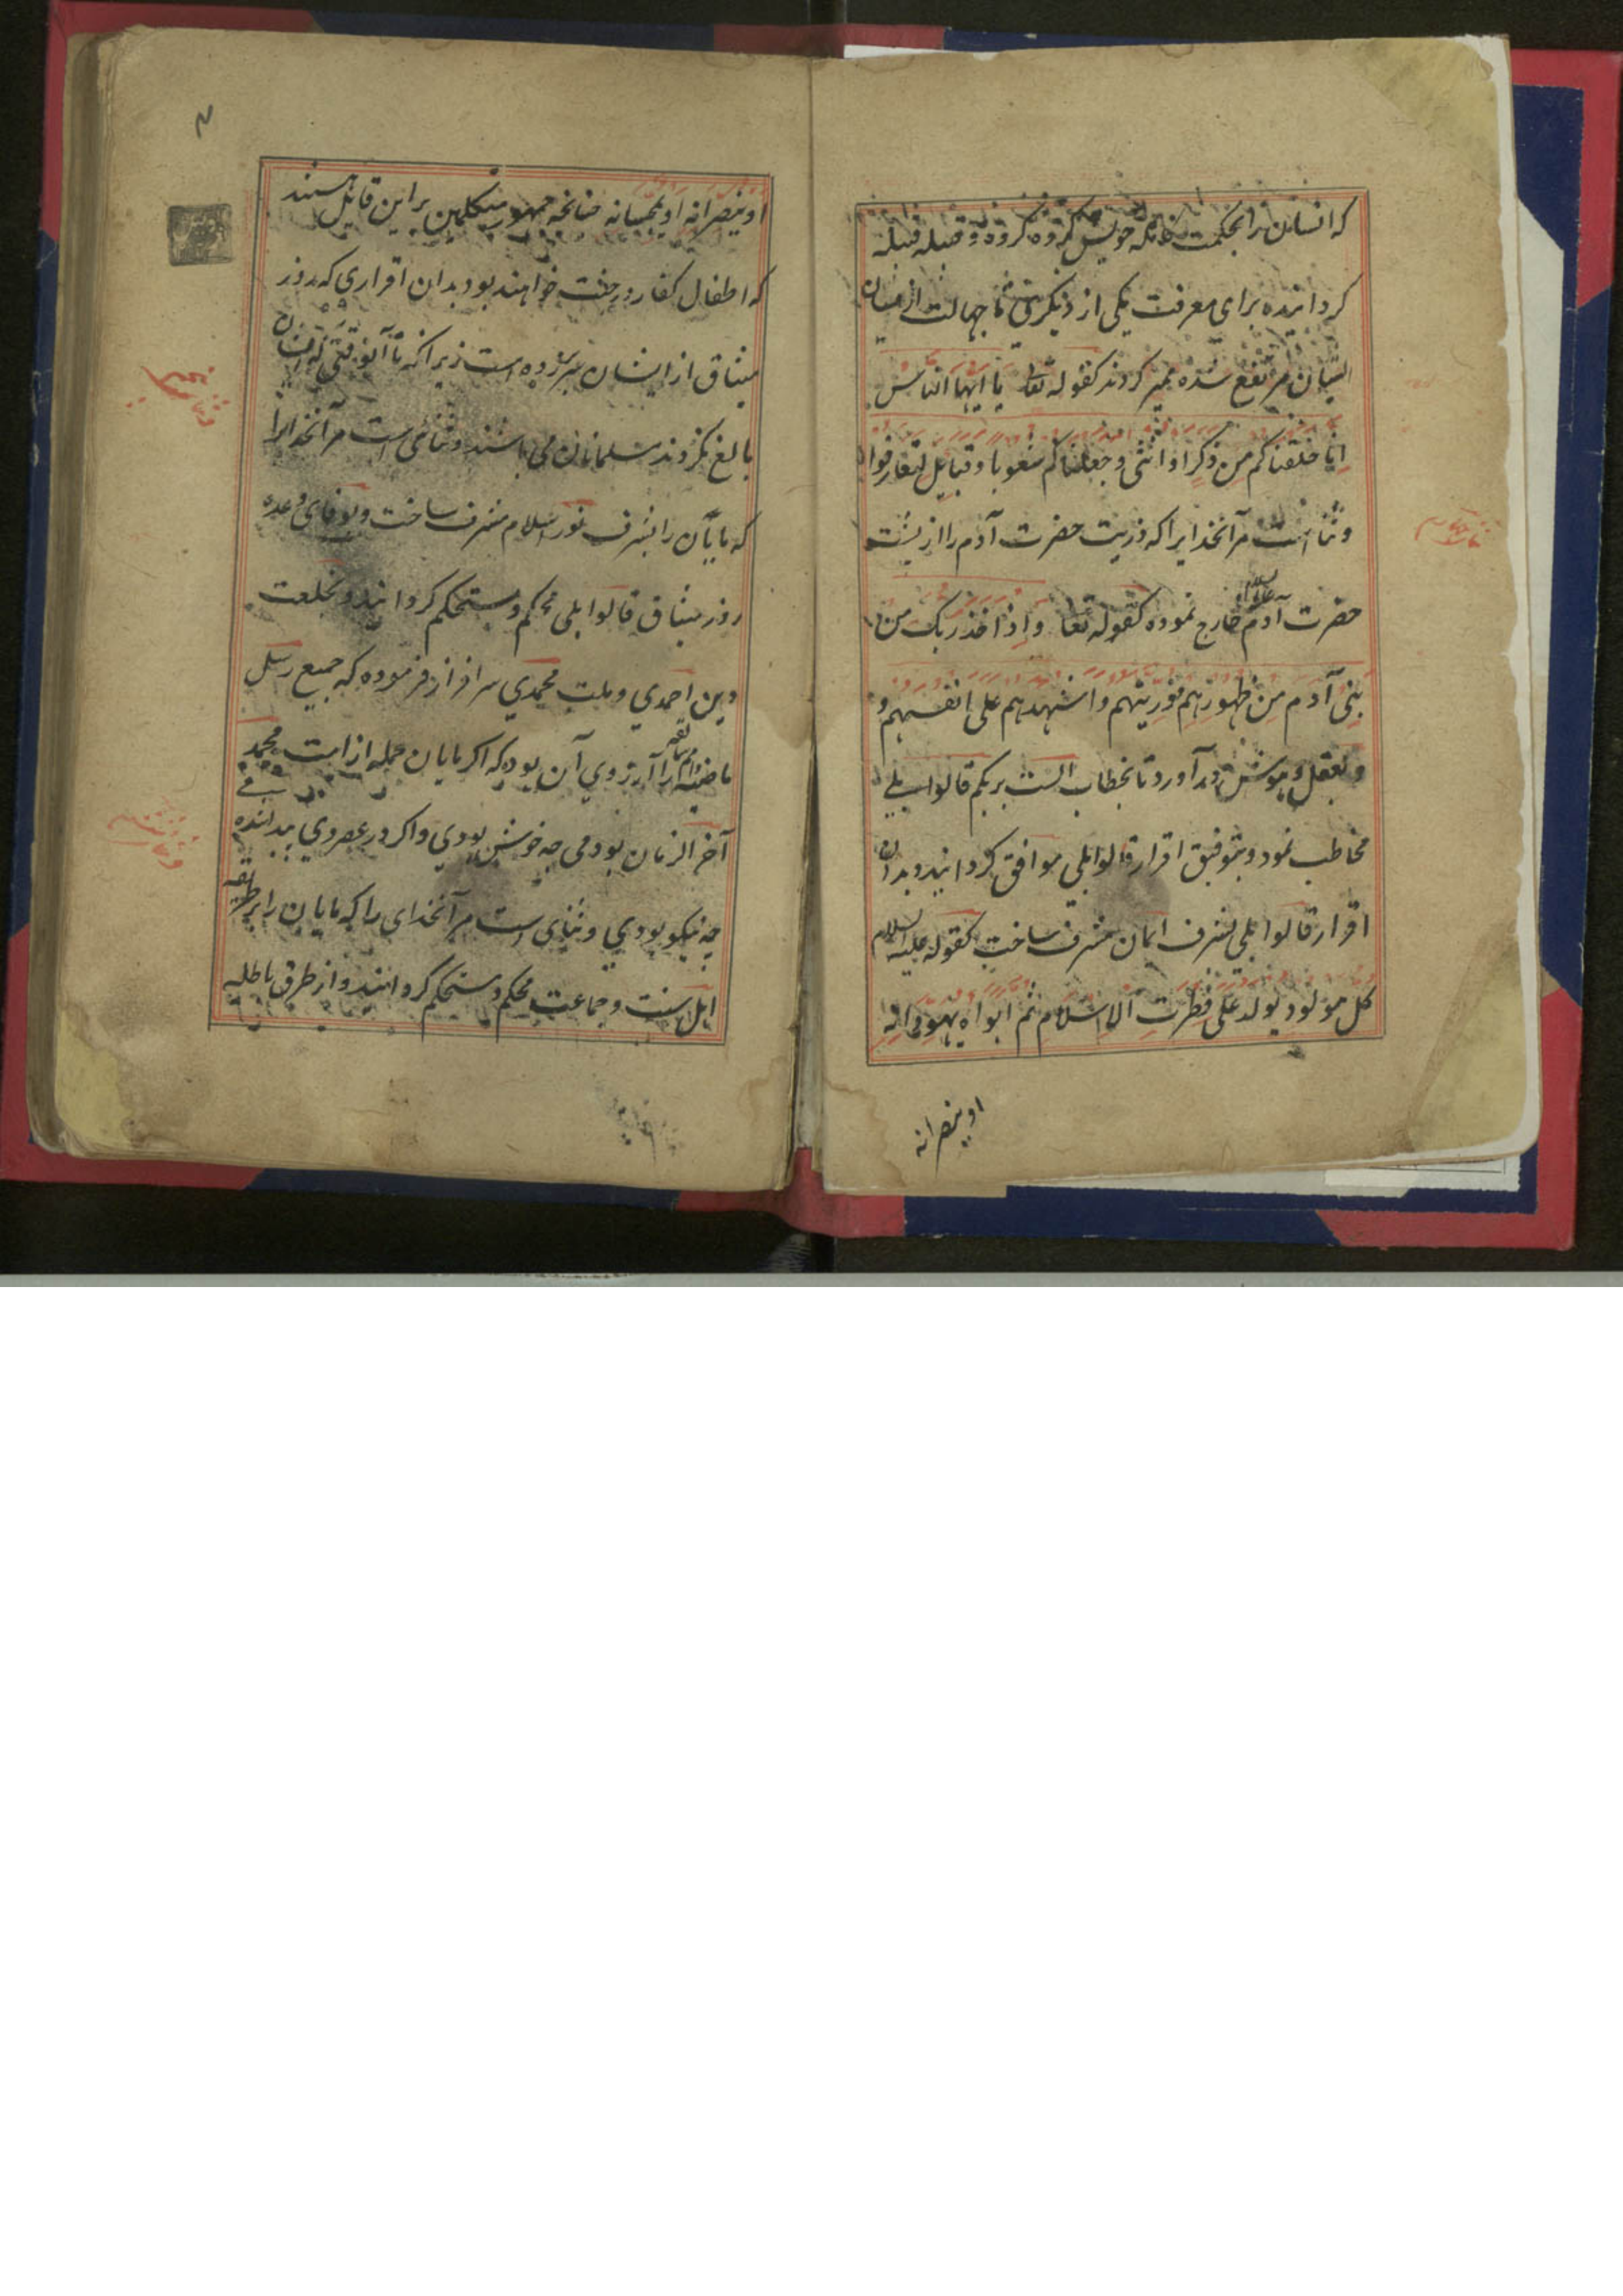 که انسان را بحکمت خویش گروه گروه و قبیله قبیله
کردانیده برای معرفت یکی از دیگری تا جهالت از میان
ایشان مرتفع شده ممیز کردند کقوله تعا یا ایها الناس
انا خلقناکم من ذکر او انثی و جعلناکم شعوبا و قبایل لتعارفوا
و ثنا است مر آنخدایرا که ذریت حضرت آدم را از پشت
حضرت آدم علیه السلام خارج نموده کقوله تعا و اذ اخذ ربک من
بنی آدم من ظهورهم ذریتهم و اشهدهم علی انفسهم و
و بعقل و هوش در آورد تا بخطاب الست بربکم قالوا بلی
مخاطب نمود و بتوفیق اقرار قالوا بلی موافق کردانید و بدان
اقرار قالوا بلی بشرف ایمان مشرف ساخت کقوله علیه السلام
کل مولود یولد علی فطرت الاسلام ثم ابواه یهودانه
او ینصرانه
او ینصرانه او یمجسانه چنانچه جمهور متکلمین بر این قایل هستند
که اطفال کفار در جنت خواهند بود بدان اقراری که روز
میثاق از ایشان سر زده است زیرا که تا آنوقتی که ایشان
بالغ نکردند مسلمانان می باشند و ثنای است مر آنخدایرا
که مایان را بشرف نور اسلام مشرف ساخت و بوفای وعده
روز میثاق قالوا بلی محکم و مستحکم کردانید و بخلعت
دین احمدی و ملت محمدی سرافراز فرموده که جمیع رسل
ماضیه را آرزوی آن بوده که اکر مایان جمله از امت محمد
آخر الزمان بودمی چه خوش بودی و اکر در عصر وی
چه نیکو بودی و ثنای است مر آنخدای را که مایان را بر طریقه
اهل سنت و جماعت محکم و مستحکم کردانید و از طرق باطله